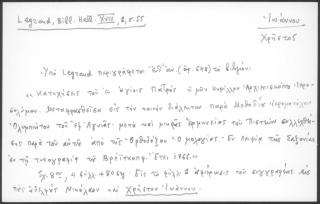 Legrand, Bibl. Hell. XVIII, 2, σ. 55
Ἰωάννου
Χρῆστος
Ὑπὸ Legrand περιγράφεται (ἀρ. 648) τὸ βιβλίον:
"Κατηχήσεις τοῦ ἐν ἁγίοις Πατρὸς ἡμῶν Κυρίλλου Ἀρχιεπισκόπου Ἱερο-
σολύμων. Μεταφρασθεῖσαι εἰς τὴν κοινὴν διάλεκτον παρὰ Μεθοδίου Ἱερομονάχου
Ὀλυμπιώτου τοῦ ἐξ Ἁγιᾶς. μετὰ καὶ μικρᾶς ἑρμηνείας τοῦ Πιστεύω
παρὰ τοῦ αὐτοῦ ἀπὸ τῆς Ὀρθοδόξου Ὁμολογίας. Ἐν Λειψίᾳ τῆς Σαξονίας
ἐν τῇ τυπογραφίᾳ τοῦ Βρεϊτκόπφ. Ἔτει 1766."
Σχ. 8ον, 4 φύλλ. + 80 σελ. Εἰς τὸ φύλλ. 2 ἀφιέρωσις τοῦ συγγραφέως εἰς
τοὺς ἀδελφοὺς Νικόλαον καὶ Χρῆστον Ἰωάννου.